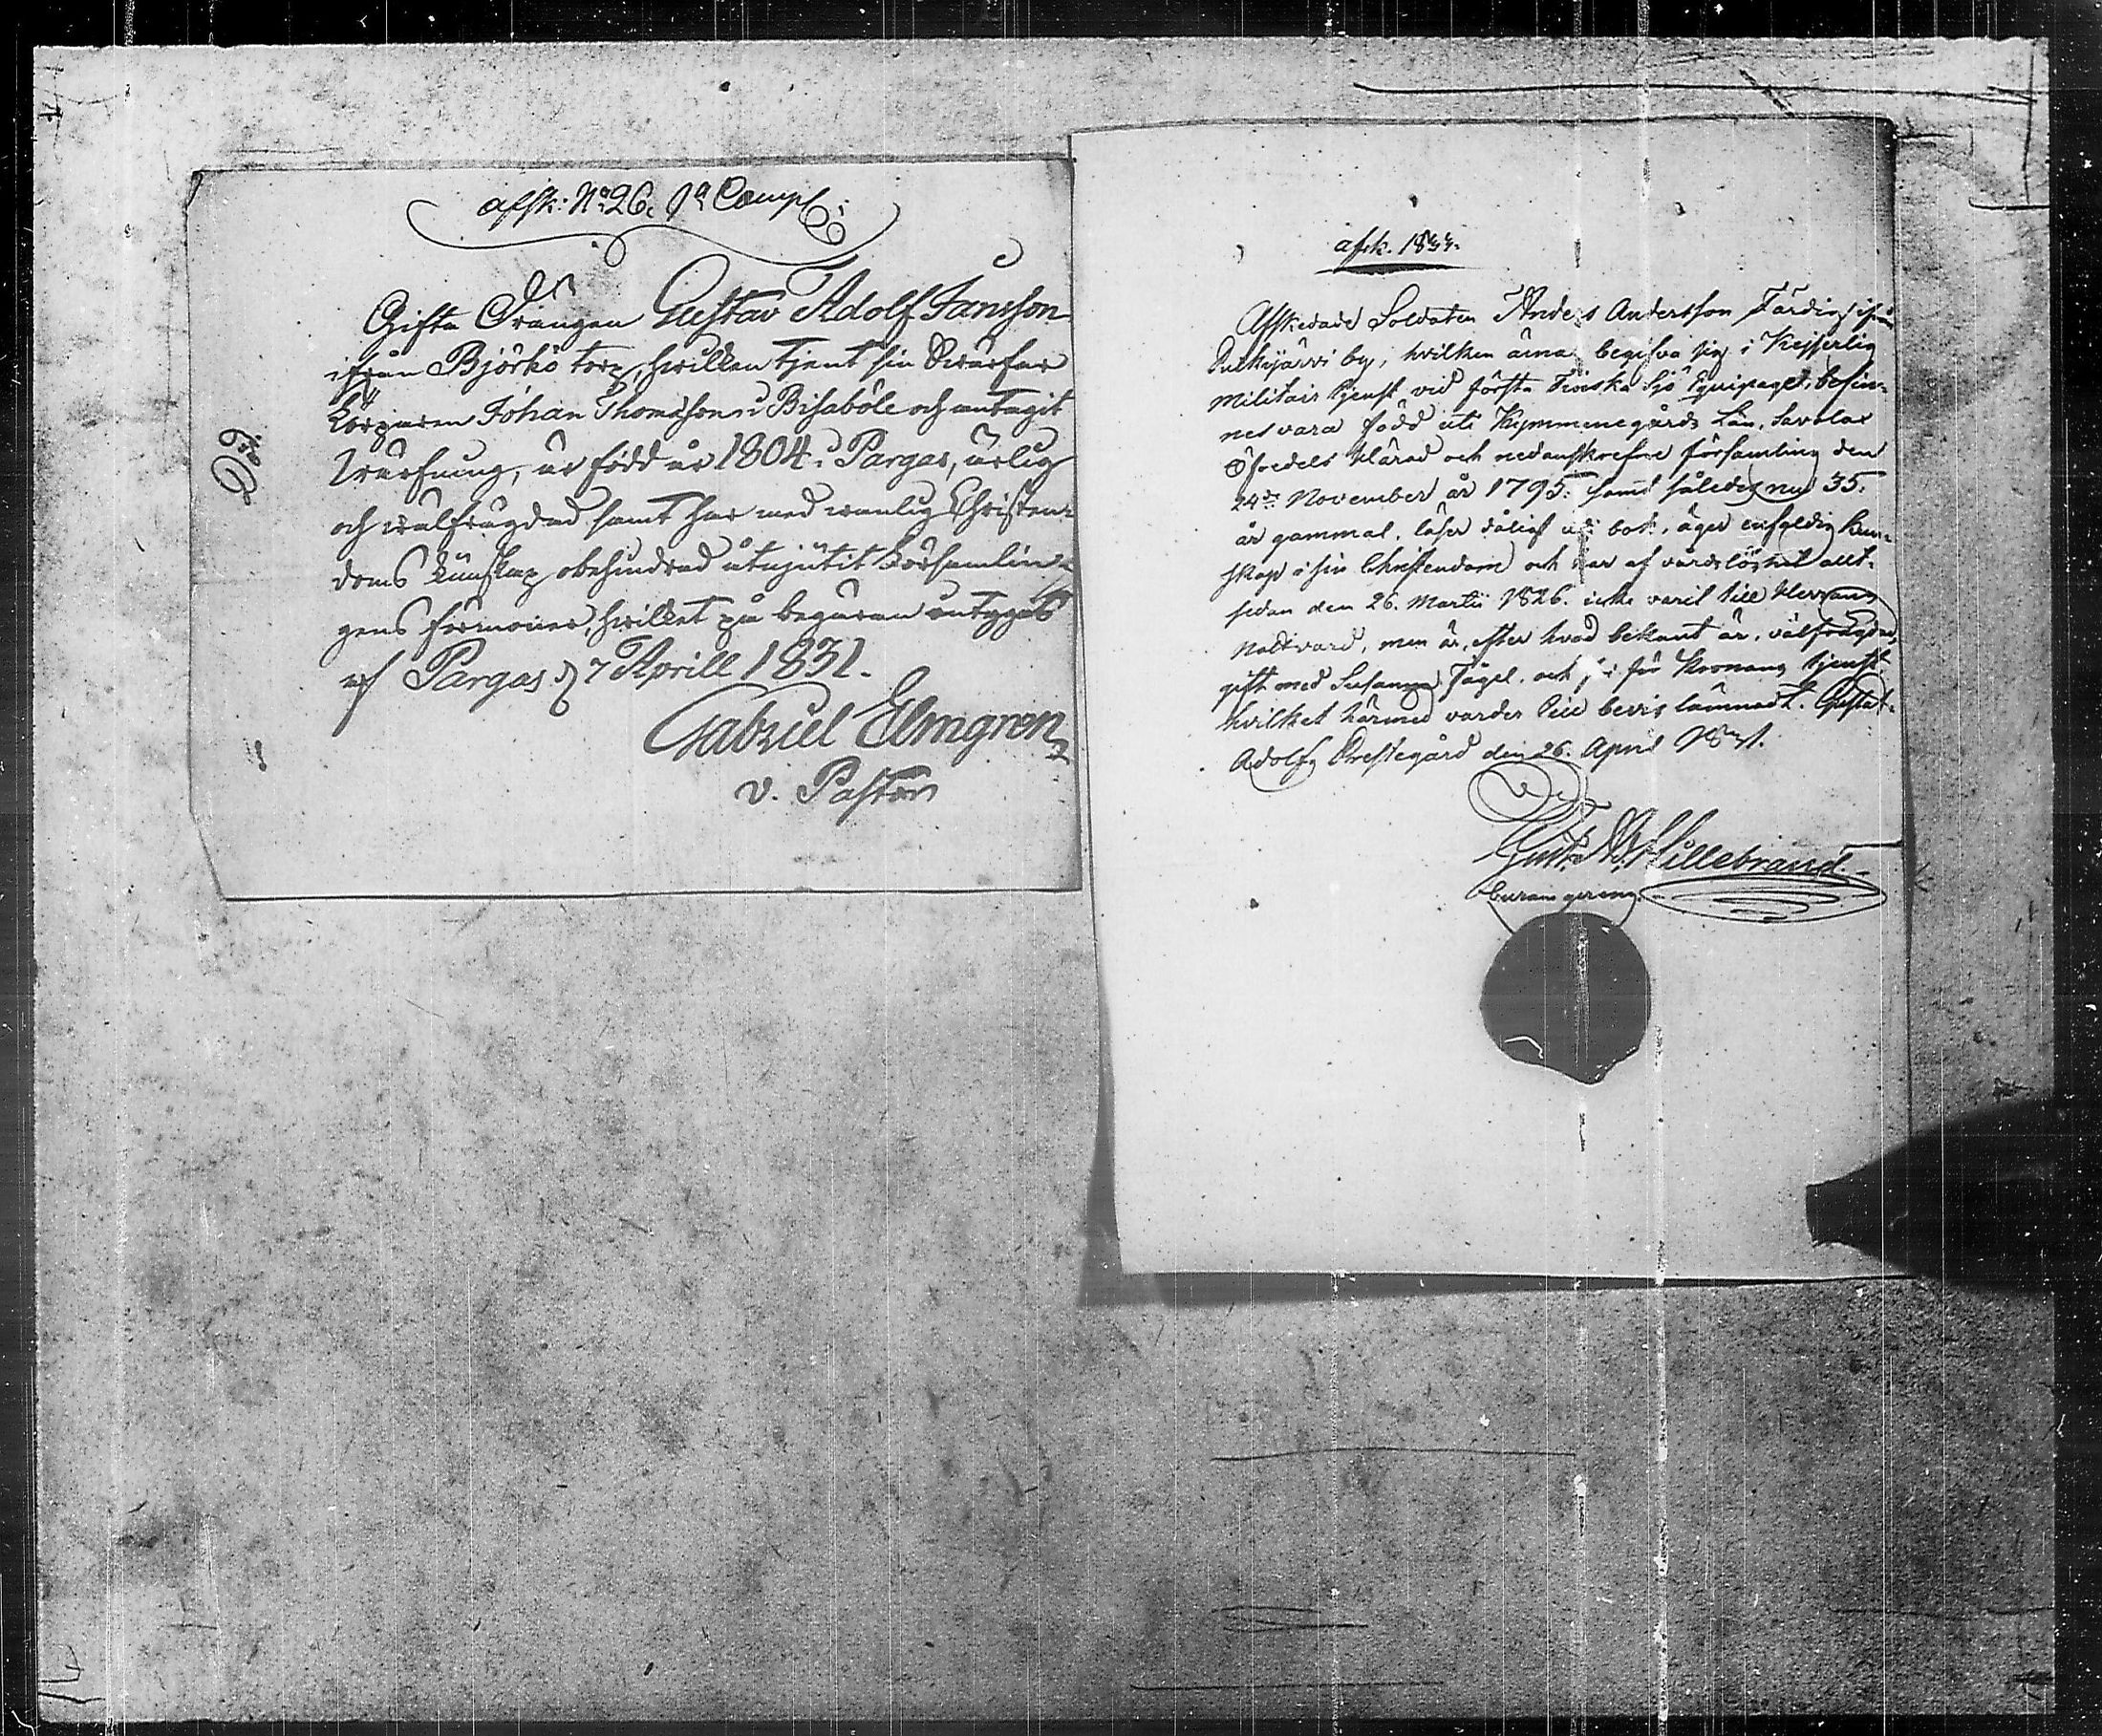 afsk: No 26. 1a Comp:
Gifta Drängen Gustav Adolf Jansson
ifrån Björkö torp, hwilken tjent sin Swärfar
Torparen Johan Thomasson i Bisaböle och antagit
Wärfning, är född år 1804 i Pargas, ärlig
och wälfrägdad samt har med wanlig Christen-
doms kunskap obehindrad åtnjutit Församlin-
gens förmoner, hwilket på begäran intygas
af Pargas d 7 Aprill 1831.
Gabriel Elmgren
v. Pastor
afsk. 1834.
Afskedade Soldaten Anders Andersson Färdig ifrån
Pulkijärvi by, hvilken ärnar begifva sig i Kejserlig
Militair tjenst vid första Finska Sjö Equipaget, befin-
nes vara född uti Kymmenegårds Län, Savolax
Öfredels Härad och nedanskrefne församling den
24de November år 1795. samt således nu 35.
år gammal, läser dåligt uti bok, äger enfaldig kun-
skap i sin Christendom och har af vårdslöshet allt-
sedan den 26. Martii 1826. icke varit till Herrans
Nattvard, men är, efter hvad bekant är, välfrägdad,
gift med Susanna Fågel, och fri för Kronans tjenst
hvilket härmed varder till bevis lämnadt. Gustaf-
Adolfs Prestegård den 26. April 1831.
Gust. Ad. Hillebrand.